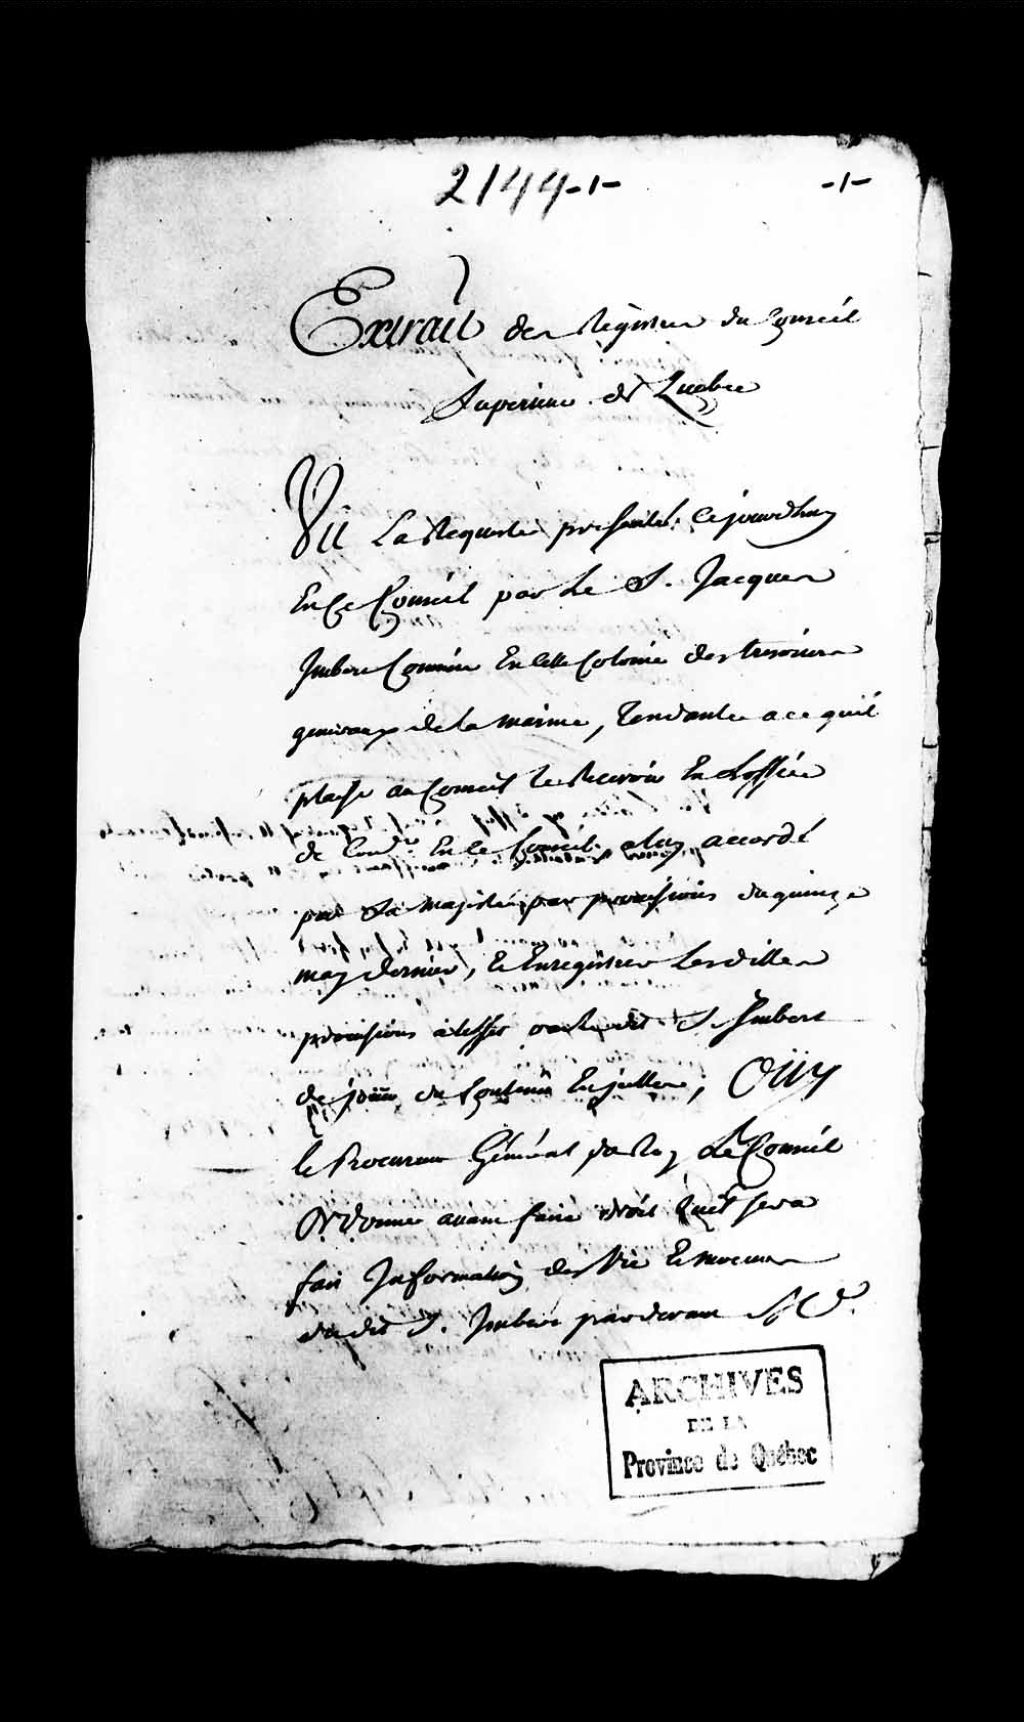 2144-1-
-1-
Extrait des Registres du Conseil
Superieur de Quebec
Vu La Requeste presentée cejourdhuy
En Ce Conseil par Le S. Jacques
Imbert Commis En cette Colonie des tresoriers
generaux de la marine, Tendante a ce quil
plaise au Conseil le Recevoir En Loffice
de Conser En ce Conseil a luy accordé
par Sa Majesté par provisions du quinze
may dernier, Et Enregistrer Lesdittes
provisions a leffet par ledit S. Imbert
de joüir du Contenu En jcelles, Oüy
le Procureur Général du Roy Le Conseil
Ordonne avant faire droit quil sera
fait Information des Vie Et moeurs
du dit S. Imbert pardevant
ARCHIVES
DE LA
Province de Québec